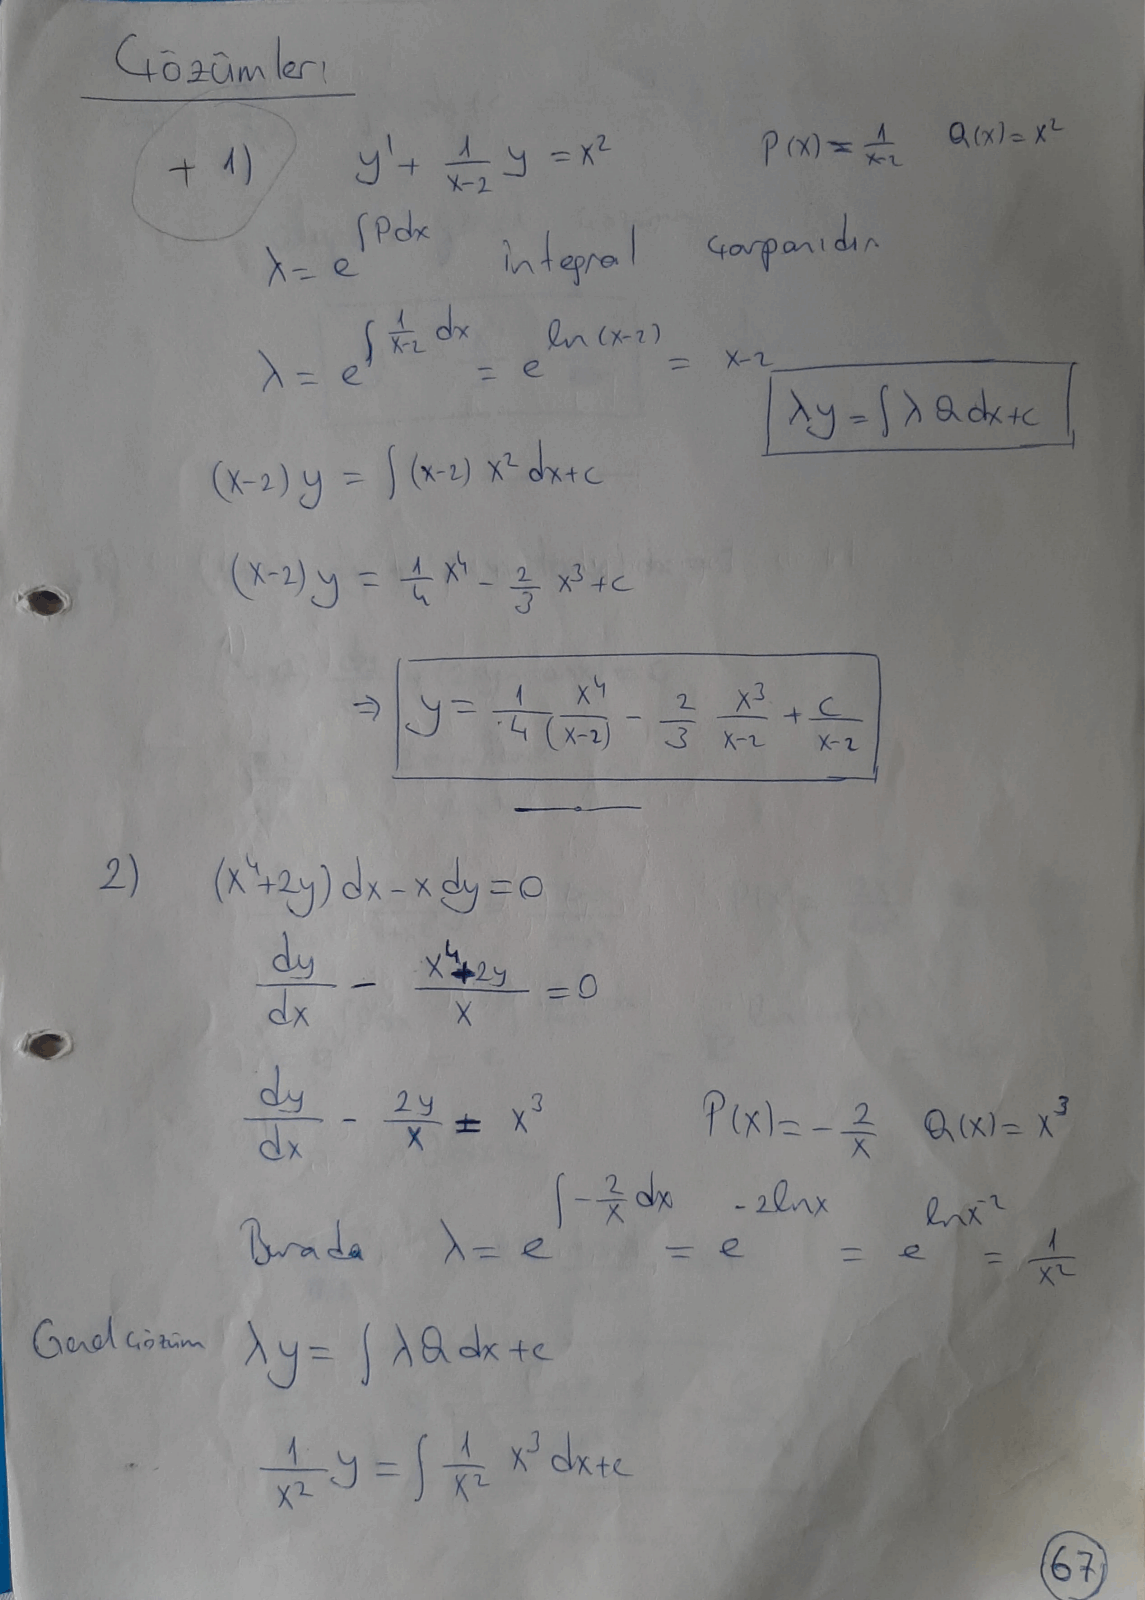 Çözümleri
+ 1) y' + 1/(x-2) y = x² P(x) = 1/(x-2) Q(x) = x²
λ = e^(∫Pdx) integral çarpanıdır
λ = e^(∫ 1/(x-2) dx) = e^(ln(x-2)) = x-2
λy = ∫λQdx+c
(x-2)y = ∫(x-2) x² dx+c
(x-2)y = 1/4 x⁴ - 2/3 x³ + c
⇒ y = 1/4 x⁴/(x-2) - 2/3 x³/(x-2) + c/(x-2)
2) (x⁴+2y)dx - xdy = 0
dy/dx - (x⁴+2y)/x = 0
dy/dx - 2y/x = x³ P(x) = -2/x Q(x) = x³
Burada λ = e^(∫-2/x dx) = e^(-2lnx) = e^(lnx⁻²) = 1/x²
Genel çözüm λy = ∫λQdx+c
1/x² y = ∫ 1/x² x³ dx+c
67